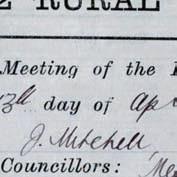 RURAL
Meeting of the
day of Ap
J. Mitchell
Councillors: